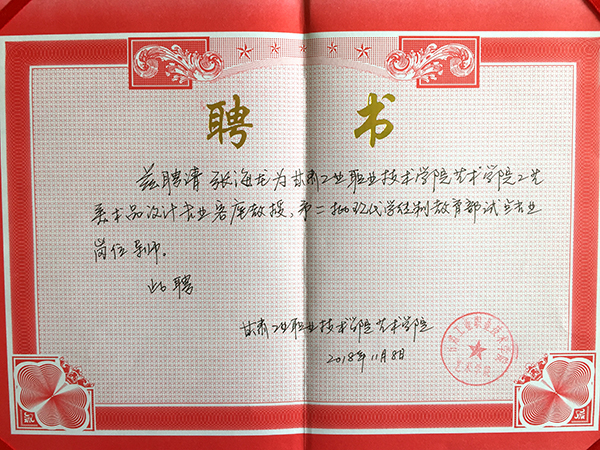 聘书
兹聘请张海龙为甘肃工业职业技术学院艺术学院工艺
美术品设计专业客座教授、第二批现代学徒制教育部试点专业
岗位导师。
此聘
甘肃工业职业技术学院艺术学院
2018年11月8日
甘肃工业职业技术学院
艺术学院